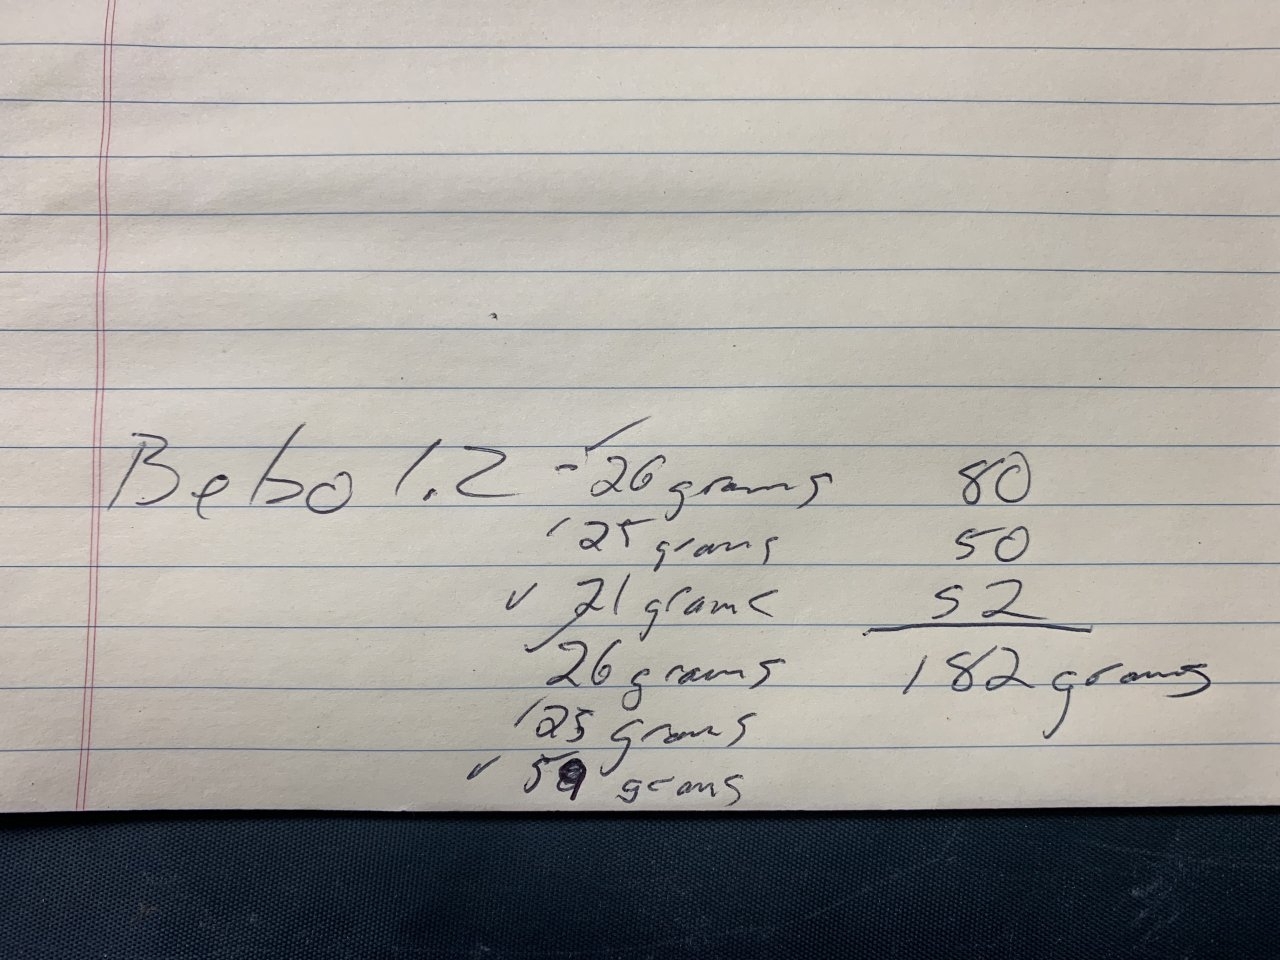 Bebo 1.2 - 26 grams 80
25 grams 50
21 grams 52
26 grams 182 grams
25 grams
59 grams